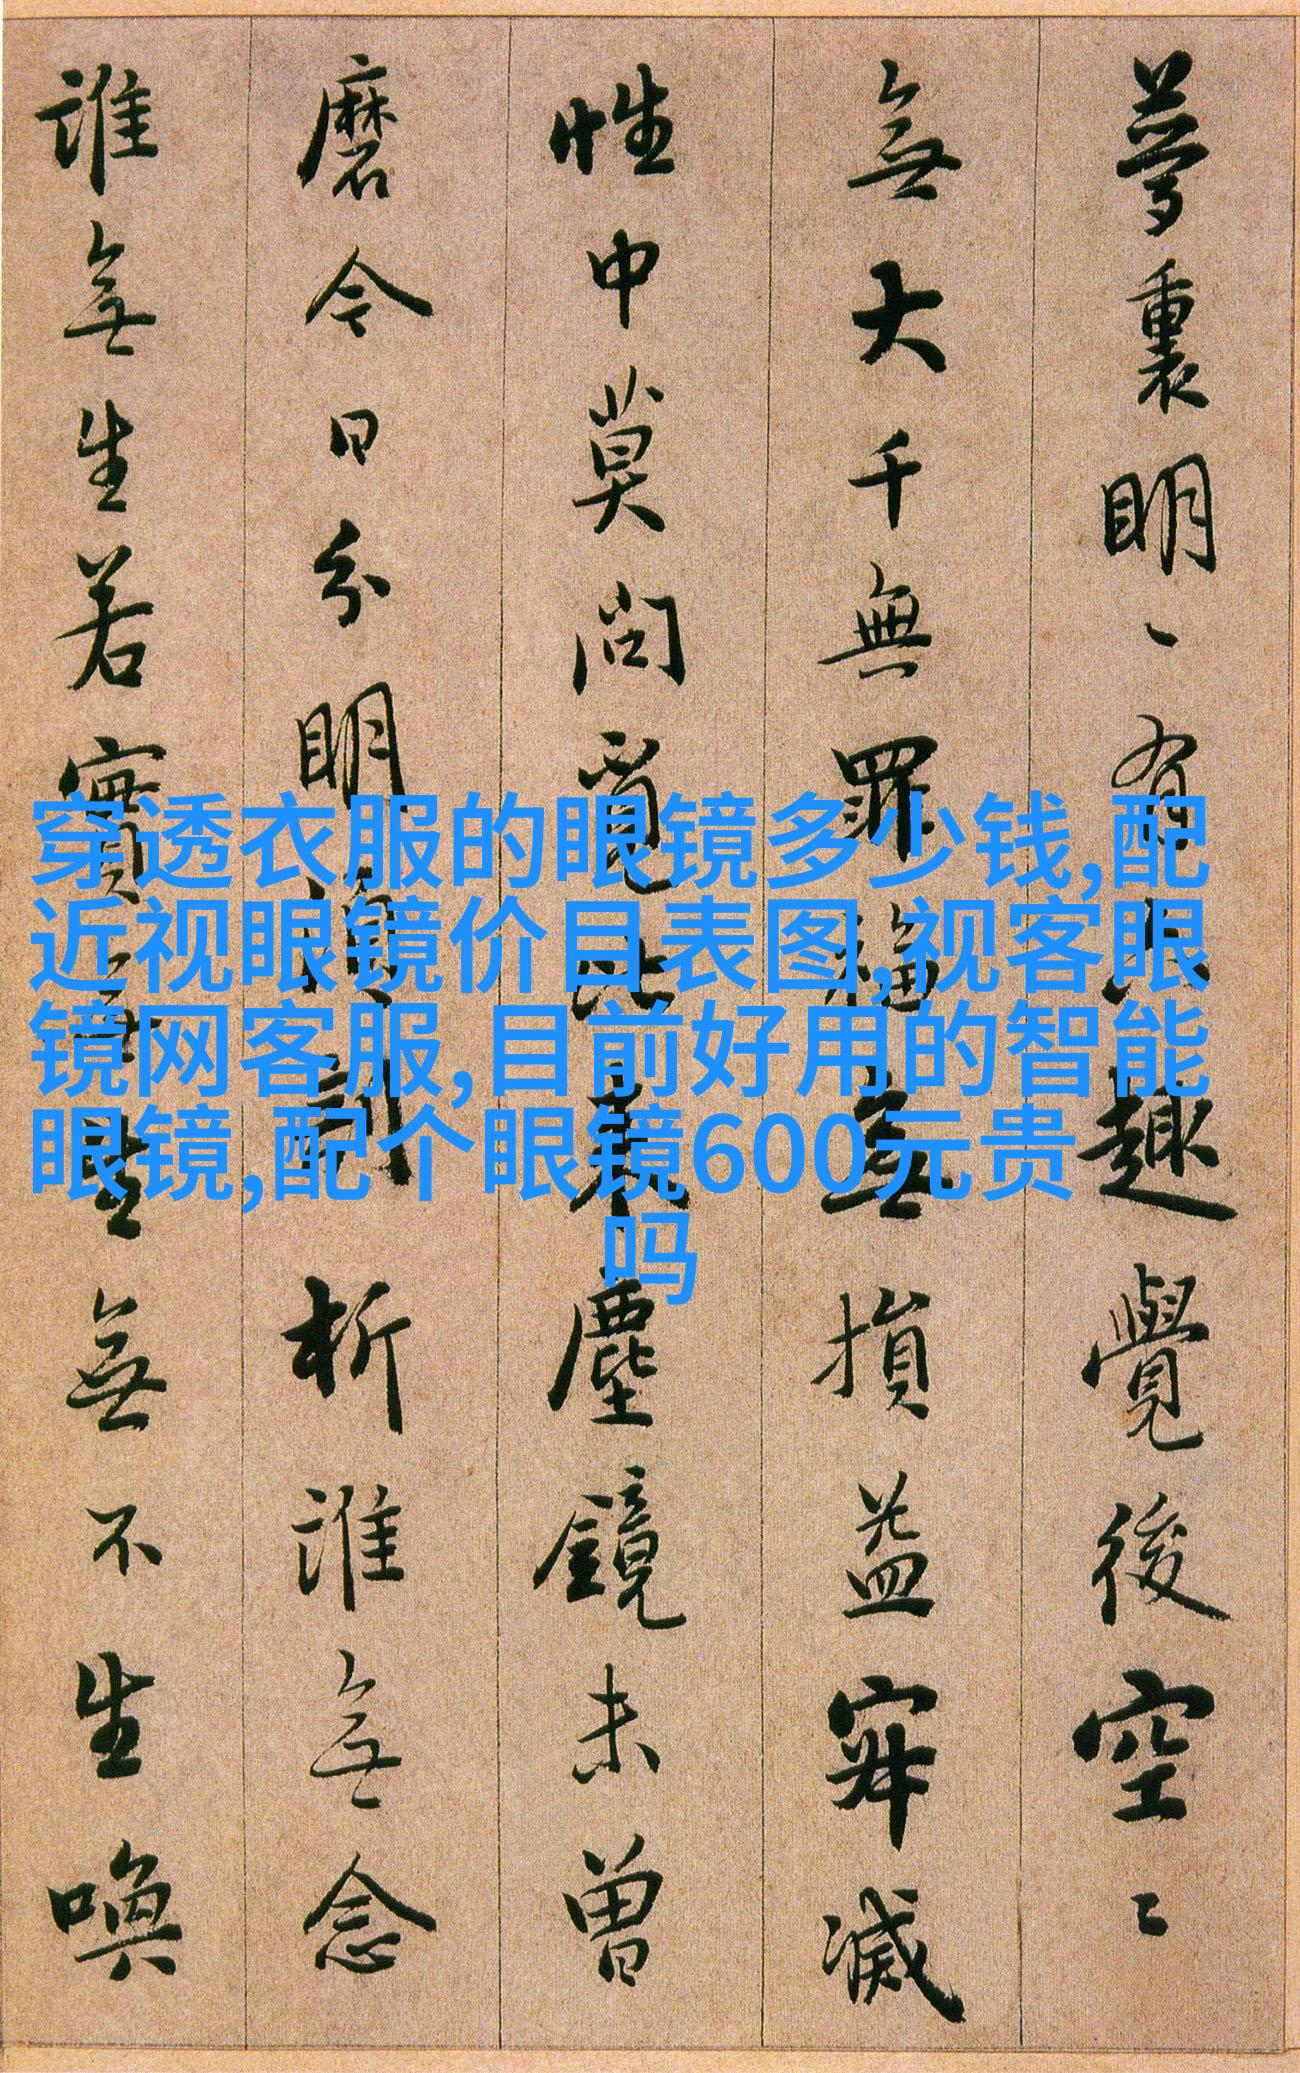 夢裏明〻有六趣覺後空〻
無大千無罪福無損益寂滅
性中莫問覓比来塵鏡未曾
磨今日分明須剖析誰無念
誰無生若實無生無不生喚
穿透衣服的眼镜多少钱,配
近视眼镜价目表图,视客眼
镜网客服,目前好用的智能
眼镜,配个眼镜600元贵
吗